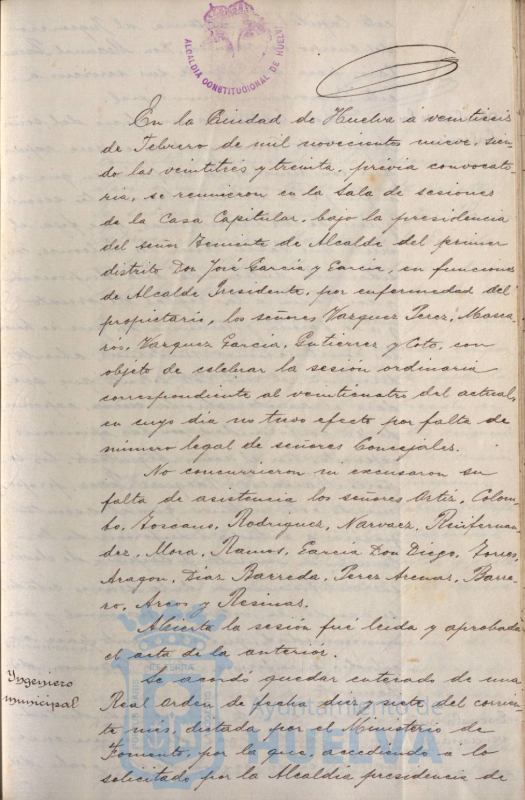 ALCALDIA CONSTITUCIONAL DE HUELVA
En la Ciudad de Huelva á veintiseis
de Febrero de mil novecientos nueve, sien-
do las veintitres y treinta, previa convocato-
ria, se reunieron en la Sala de sesiones
de la Casa Capitular, bajo la presidencia
del señor Teniente de Alcalde del primer
distrito Don José García y García, en funciones
de Alcalde Presidente, por enfermedad del
propietario, los señores Vazquez Perez, Mosca-
rós, Vazquez García, Gutierrez y Coto, con
objeto de celebrar la sesión ordinaria
correspondiente al veinticuatro del actual,
en cuyo día no tuvo efecto por falta de
número legal de señores Concejales.
No concurrieron ni excusaron su
falta de asistencia los señores Ortiz, Colom-
bo, Toscano, Rodriguez, Narvaez, Ruifernan-
dez, Mora, Ramos, García Don Diego, Torres,
Aragon, Diaz Barreda, Perez Arenas, Barre-
ro, Arcos y Resinas.
Abierta la sesión fué leida y aprobada
el acta de la anterior.
Yngeniero
municipal
Se acordó quedar enterado de una
Real Orden de fecha diez y siete del corrien-
te mes, dictada por el Ministerio de
Fomento, por la que, accediendo á lo
solicitado por la Alcaldía presidencia de
Ayuntamiento de
HUELVA